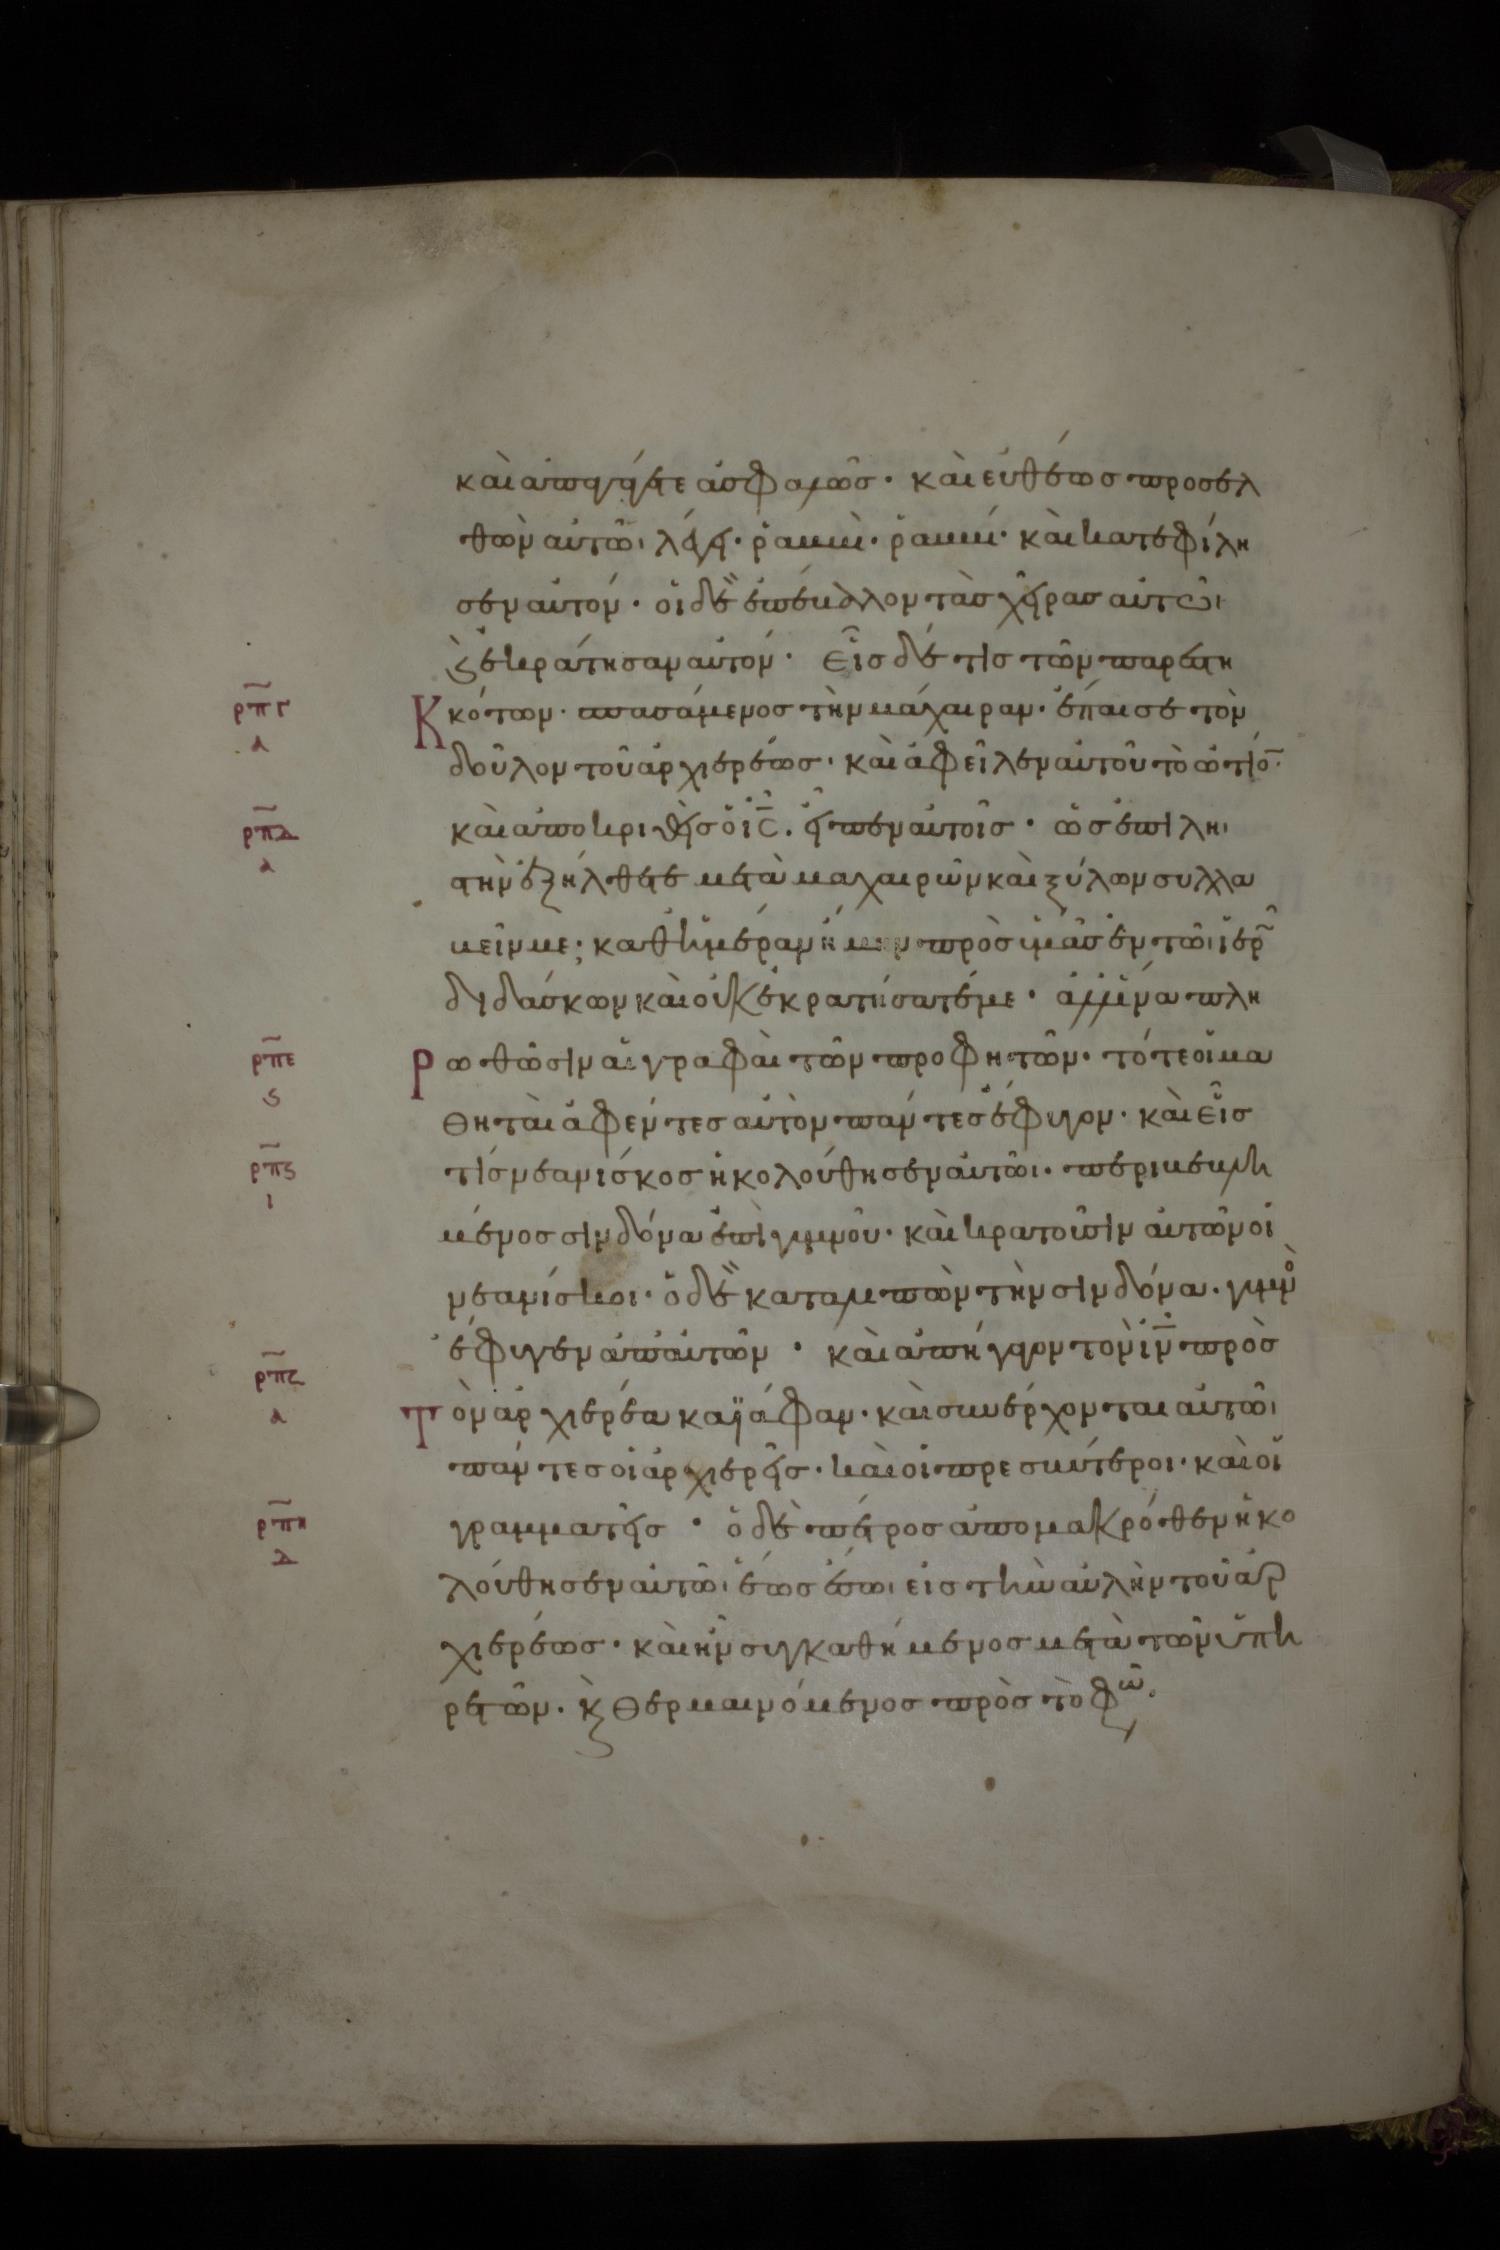 καὶ ἀπαγάγετε ἀσφαλῶς· καὶ εὐθέως προσελ
θὼν αὐτῶι λέγει· ῥαββὶ· ῥαββί· καὶ κατεφίλη
σεν αὐτόν· οἱ δὲ ἐπέβαλλον τὰς χεῖρας αὐτῶι
ρπγ
α
ϗ ἐκράτησαν αὐτόν· εἷς δέ τις τῶν παρεστη
κκότων· σπασάμενος τὴν μάχαιραν· ἔπαισε τὸν
δοῦλον τοῦ ἀρχιερέως· καὶ ἀφεῖλεν αὐτοῦ τὸ ὠτίο̅·
ρπδ
α
καὶ ἀποκριθεὶς ὁ ι̅ς̅· εἶπεν αὐτοῖς· ὡς ἐπὶ λη
στὴν ἐξήλθετε μετὰ μαχαιρῶν καὶ ξύλων συλλα
βεῖν με; καθ ἡμέραν ἤμην πρὸς ὑμᾶς ἐν τῶι ἱερῶ
διδάσκων καὶ οὐκ ἐκρατήσατέ με· ἀλλ ἵνα πλη
ρπε
ς
ρωθῶσιν αἱ γραφαὶ τῶν προφητῶν· τότε οἱ μα
θηταὶ ἀφέντες αὐτὸν πάντες ἔφυγον· καὶ εἷς
ρπς
ι
τίς νεανίσκος ἠκολούθησεν αὐτῶι· περιβεβλη
μένος σινδόνα ἐπὶ γυμνοῦ· καὶ κρατοῦσιν αὐτῶν οἱ
νεανίσκοι· ὁ δὲ καταλιπὼν τὴν σινδόνα· γυμνὸ
ἔφυγεν ἀπ αὐτῶν· καὶ ἀπήγαγον τὸν ι̅ν̅ πρὸς
ρπζ
α
τὸν ἀρχιερέα καϊάφαν· καὶ συνέρχονται αὐτῶι
πάντες οἱ ἀρχιερεῖς· καὶ οἱ πρεσβύτεροι· καὶ οἱ
ρπη
δ
γραμματεῖς· ὁ δὲ πέτρος ἀπο μακρόθεν ἠκο
λούθησεν αὐτῶι ἕως ἔσω εἰς τὴν αὐλὴν τοῦ ἀρ
χιερέως· καὶ ἦν συγκαθήμενος μετὰ τῶν ὑπη
ρετῶν· ϗ θερμαινόμενος πρὸς τὸ φῶ·